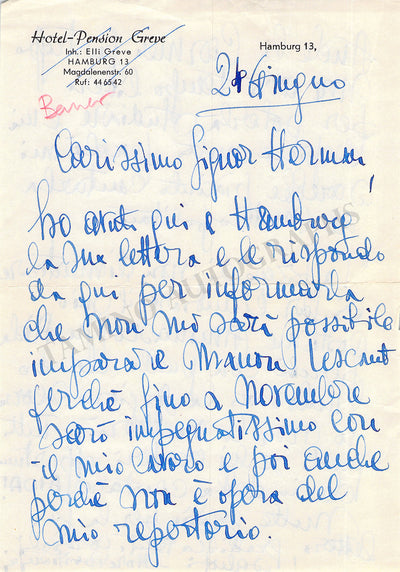 Hotel-Pension Greve
Inh.: Elli Greve
HAMBURG 13
Magdalenenstr. 60
Ruf: 44 65 42
Hamburg 13,
24 Giugno
Carissimo Signor Herman,
ho avuto qui a Hamburg
la sua lettera e le rispondo
da qui per informarla
che non mi sarà possibile
imparare Manon Lescaut
perchè fino a novembre
sarò impegnatissimo con
il mio lavoro e poi anche
perchè non è opera del
mio repertorio.
TAMINO AUTOGRAPHS